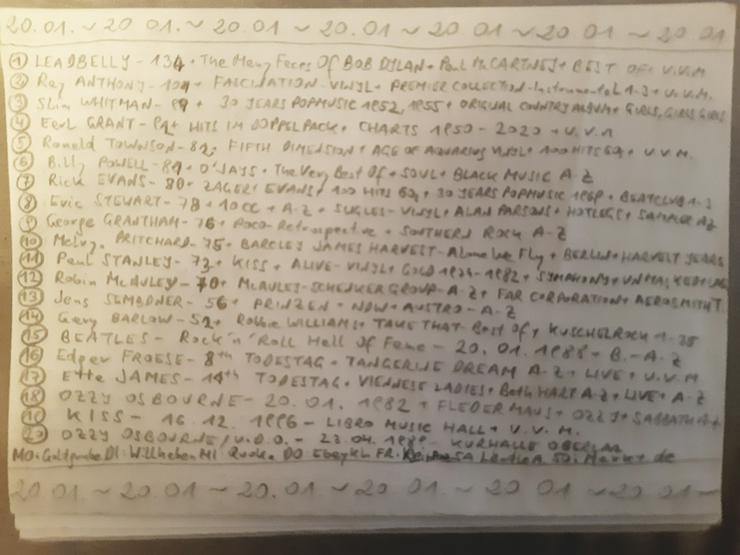 20.01. ~ 20.01. ~ 20.01 ~ 20.01 ~ 20.01 ~ 20.01 ~ 20.01
① LEADBELLY - 134 + The Many Faces Of BOB DYLAN + Paul McCARTNEY + BEST OF + U.V.M
② Ray ANTHONY - 104 + FASCINATION - VINYL + PREMIER COLLECTION - Instrumental 1-3 + U.V.M.
③ Slim WHITMAN - 99 + 30 YEARS POPMUSIC 1952, 1955 + ORIGINAL COUNTRY ALBUM + GIRLS, GIRLS, GIRLS
④ Earl GRANT - 92 + HITS IM DOPPELPACK + CHARTS 1950 - 2020 + U.V.M
⑤ Ronald TOWNSON - 82 + FIFTH DIMENSION + AGE OF AQUARIUS VINYL + 100 HITS 60s + U.V.M.
⑥ Billy POWELL - 81 + O'JAYS + The Very Best Of + SOUL + BLACK MUSIC A-Z
⑦ Rick EVANS - 80 + ZAGER + EVANS + 100 HITS 60s + 30 YEARS POPMUSIC 1969 + BEATCLUB 1-3
⑧ Eric STEWART - 78 + 10CC + A-Z + SINGLES - VINYL + ALAN PARSONS + HOTLEGS + SAMPLER AZ
⑨ George GRANTHAM - 76 + POCO - Retrospective + SOUTHERN ROCK A-Z
⑩ PRITCHARD - 75 + BARCLEY JAMES HARVEST - Alone We Fly + BERLIN + HARVEST YEARS
⑪ Paul STANLEY - 72 + KISS + ALIVE - VINYL + GOLD 1974 - 1982 + SYMPHONY + UNMASKED
⑫ Robin McAULEY - 70 + McAULEY - SCHENKER GROUP - A-Z + FAR CORPORATION + AEROSMITH T.
⑬ Jens SEMBDNER - 56 + PRINZEN + NDW + AUSTRO - A-Z
⑭ Gary BARLOW - 52 + Robbie WILLIAMS + TAKE THAT - Best Of + KUSCHELROCK 1-25
⑮ BEATLES - Rock'n'Roll Hall Of Fame - 20.01.1988 + B. - A-Z
⑯ Edgar FROESE - 8th TODESTAG + TANGERINE DREAM A-Z + LIVE + U.V.M
⑰ Etta JAMES - 11th TODESTAG + VIENNESE LADIES + Beth HART A-Z + LIVE + A-Z
⑱ OZZY OSBOURNE - 20.01.1982 + FLEDERMAUS + OZZY + SABBATH A-Z
⑲ KISS - 16.12.1996 - LIBRO MUSIC HALL + U.V.M.
⑳ OZZY OSBOURNE / U.D.O. - 23.04.1989 - KURHALLE OBERLAA
MO: Goldgrube DI: Willhaben MI: Quoka DO FR: SA SO: Markt.de
20 01. ~ 20 01 ~ 20.01 ~ 20 01 ~ 20 01 ~ 20 01